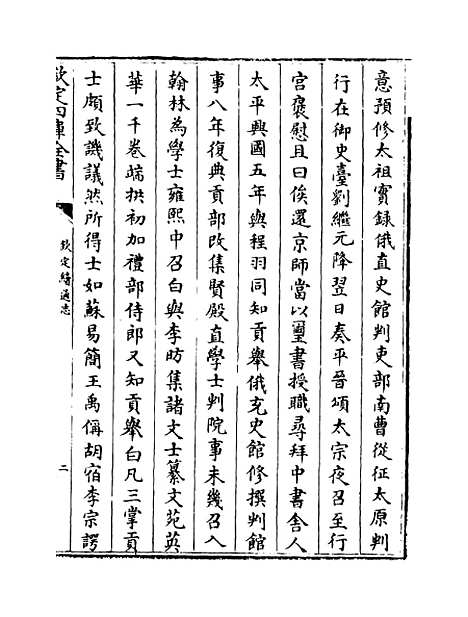 意預修太祖實録俄直史館判吏部南曹從征太原判
行在御史臺劉繼元降翌日奏平晉頌太宗夜召至行
宫褒慰且曰俟還京師當以璽書授職尋拜中書舍人
太平興國五年與程羽同知貢舉俄充史館修撰判館
事八年復典貢部改集賢殿直學士判院事未幾召入
翰林為學士雍熙中召白與李昉集諸文士纂文苑英
華一千卷端拱初加禮部侍郎又知貢舉白凡三掌貢
士頗致譏議然所得士如蘇易簡王禹偁胡宿李宗諤
欽定四庫全書
欽定續通志
二